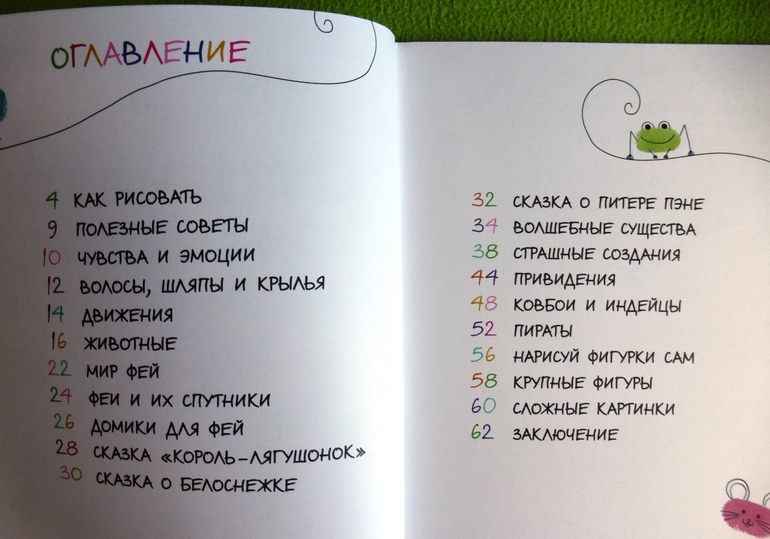 ОГЛАВЛЕНИЕ
4 КАК РИСОВАТЬ
9 ПОЛЕЗНЫЕ СОВЕТЫ
10 ЧУВСТВА И ЭМОЦИИ
12 ВОЛОСЫ, ШЛЯПЫ И КРЫЛЬЯ
14 ДВИЖЕНИЯ
16 ЖИВОТНЫЕ
22 МИР ФЕЙ
24 ФЕИ И ИХ СПУТНИКИ
26 ДОМИКИ ДЛЯ ФЕЙ
28 СКАЗКА «КОРОЛЬ-ЛЯГУШОНОК»
30 СКАЗКА О БЕЛОСНЕЖКЕ
32 СКАЗКА О ПИТЕРЕ ПЭНЕ
34 ВОЛШЕБНЫЕ СУЩЕСТВА
38 СТРАШНЫЕ СОЗДАНИЯ
44 ПРИВИДЕНИЯ
48 КОВБОИ И ИНДЕЙЦЫ
52 ПИРАТЫ
56 НАРИСУЙ ФИГУРКИ САМ
58 КРУПНЫЕ ФИГУРЫ
60 СЛОЖНЫЕ КАРТИНКИ
62 ЗАКЛЮЧЕНИЕ